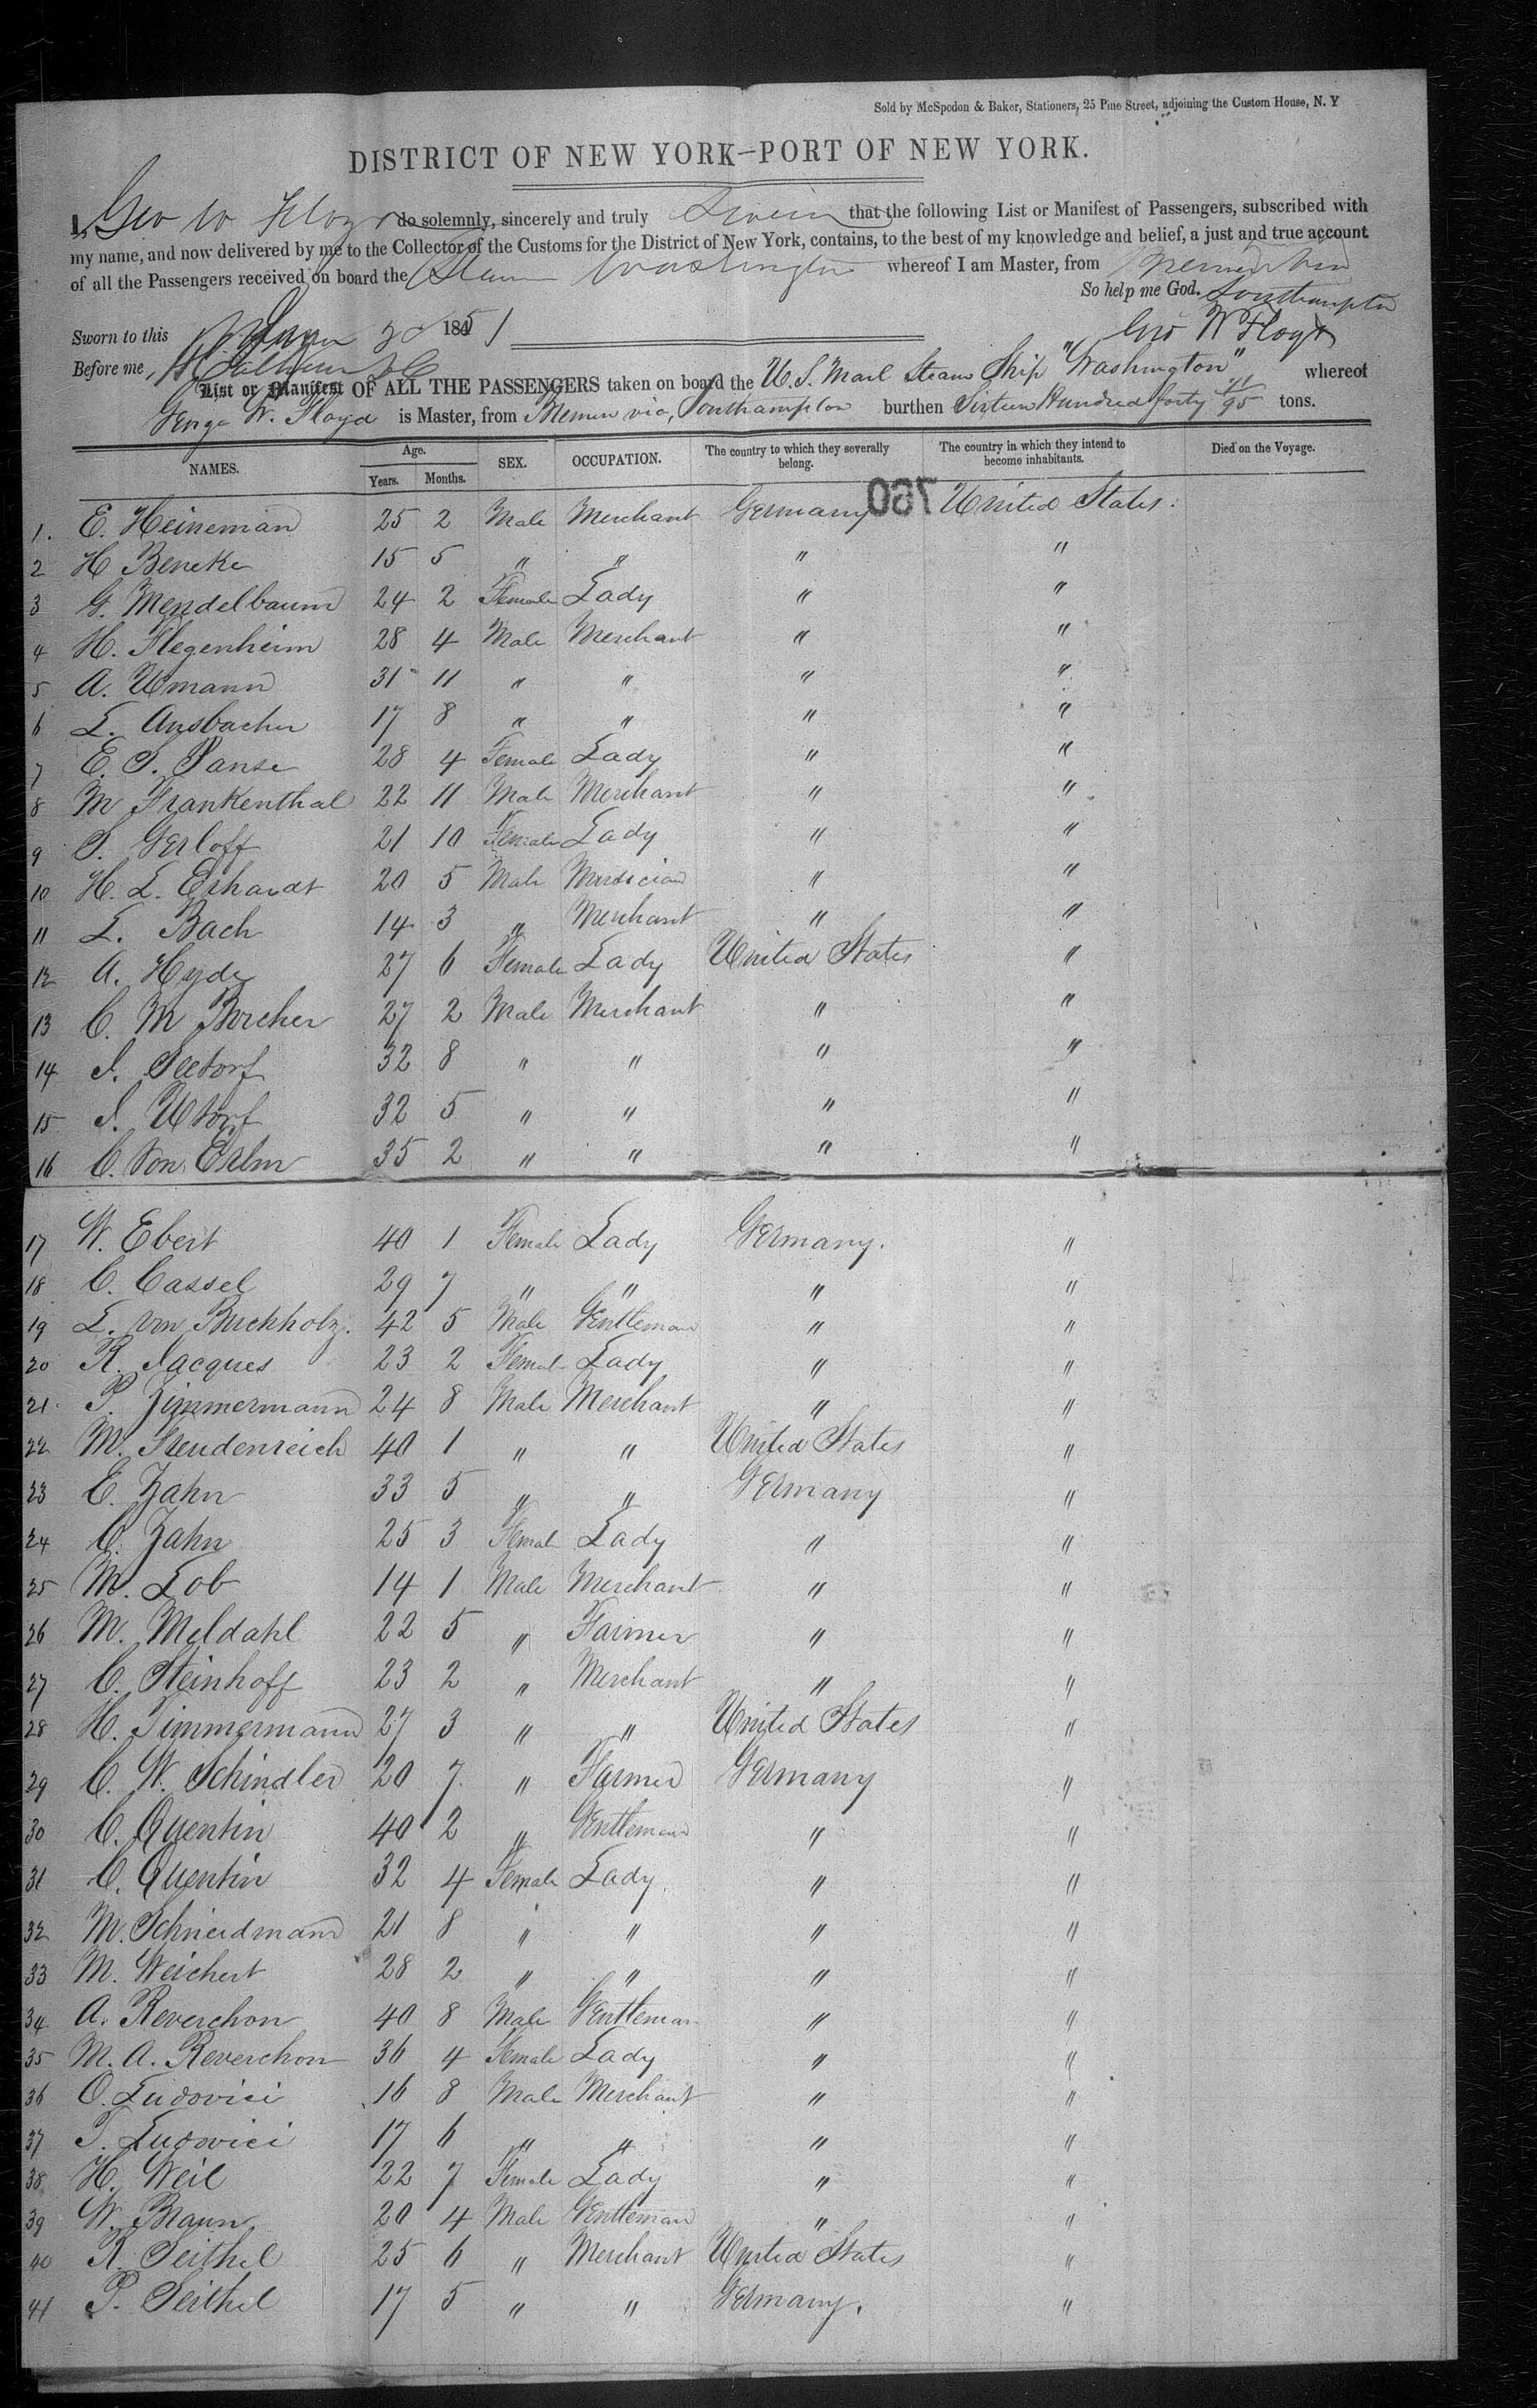 Sold by McSpedon & Baker, Stationers, 25 Pine Street, adjoining the Custom House, N. Y
DISTRICT OF NEW YORK—PORT OF NEW YORK.
I, Geo W Floyd do solemnly, sincerely and truly Swear that the following List or Manifest of Passengers, subscribed with
my name, and now delivered by me to the Collector of the Customs for the District of New York, contains, to the best of my knowledge and belief, a just and true account
of all the Passengers received on board the Steam Washington whereof I am Master, from Bremen via
So help me God. Southampton
Sworn to this 1851 Geo W Floyd
Before me,
List or Manifest OF ALL THE PASSENGERS taken on board the U. S. Mail Steam Ship "Washington" whereof
George W. Floyd is Master, from Bremen via, Southampton burthen Sixteen Hundred forty 41/95 tons.
NAMES. Age. Years. Months. SEX. OCCUPATION. The country to which they severally belong. The country in which they intend to become inhabitants. Died on the Voyage.
760
1. E. Heineman 25 2 Male Merchant Germany United States.
2 H Beneke 15 5 " " " "
3 G. Mendelbaum 24 2 Female Lady " "
4 H. Flegenheim 28 4 Male Merchant " "
5 A. Umann 31 11 " " " "
6 L. Ansbacher 17 8 " " " "
7 E. S. Panse 28 4 Female Lady " "
8 M Frankenthal 22 11 Male Merchant " "
9 S. Gerloff 21 10 Female Lady " "
10 H. L. Erhardt 20 5 Male Musician " "
11 L. Bach 14 3 " Merchant " "
12 A. Hyde 27 6 Female Lady United States "
13 C. M Borcher 27 2 Male Merchant " "
14 I. Seetorf 32 8 " " " "
15 I. Utorf 32 5 " " " "
16 C. Von 35 2 " " " "
17 W. Ebert 40 1 Female Lady Germany. "
18 C. Cassel 29 7 " " " "
19 L. von Buchholz. 42 5 Male Gentleman " "
20 R. Jacques 23 2 Female Lady " "
21. P. Zimmermann 24 8 Male Merchant " "
22 M. Freudenreich 40 1 " " United States "
23 E. Zahn 33 5 " " Germany "
24 C. Zahn 25 3 Femal Lady " "
25 M. Lob 14 1 Male Merchant " "
26 M. Meldahl 22 5 " Farmer " "
27 C. Steinhoff 23 2 " Merchant " "
28 H. Timmermann 27 3 " " United States "
29 C. W. Schindler 20 7. " Farmer Germany "
30 C. Quentin 40 2 " Gentleman " "
31 C. Quentin 32 4 Female Lady. " "
32 M. Schneidmann 21 8 " " " "
33 M. Weichert 28 2 " " " "
34 A. Reverchon 40 8 Male Gentleman " "
35 M. A. Reverchon 36 4 Female Lady " "
36 O. Ludovici 16 8 Male Merchant " "
37 T. Ludovici 17 6 " " " "
38 H. Weil 22 7 Female Lady " "
39 W. Braun 20 4 Male Gentleman " "
40 R. Seithel 25 6 " Merchant United States "
41 P. Seithel 17 5 " " Germany. "